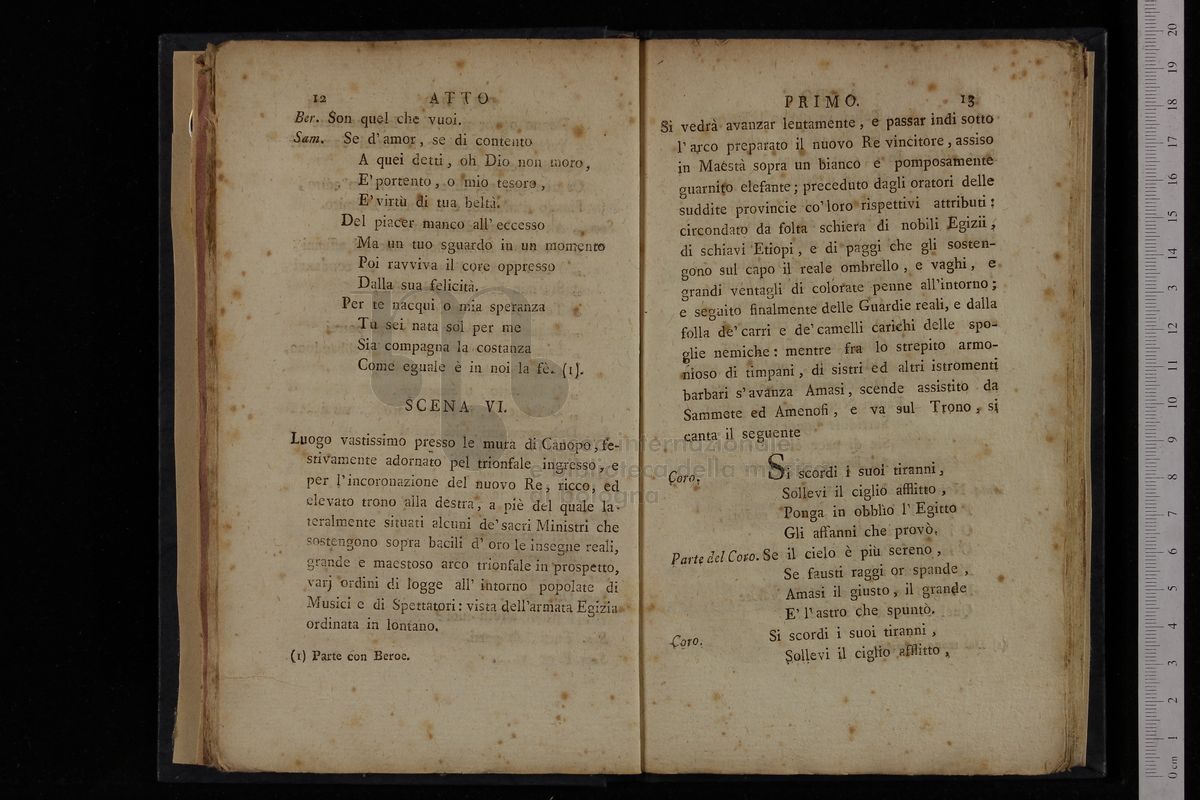 12 ATTO
Ber. Son quel che vuoi.
Sam. Se d'amor, se di contento
A quei detti, oh Dio non moro,
E' portento, o mio tesoro,
E' virtù di tua beltà.
Del piacer manco all'eccesso
Ma un tuo sguardo in un momento
Poi ravviva il core oppresso
Dalla sua felicità.
Per te nacqui o mia speranza
Tu sei nata sol per me
Sia compagna la costanza
Come eguale è in noi la fè. (1).
SCENA VI.
Luogo vastissimo presso le mura di Canopo, fe-
stivamente adornato pel trionfale ingresso, e
per l'incoronazione del nuovo Re, ricco, ed
elevato trono alla destra, a piè del quale la-
teralmente situati alcuni de' sacri Ministri che
sostengono sopra bacili d'oro le insegne reali,
grande e maestoso arco trionfale in prospetto,
varj ordini di logge all'intorno popolate di
Musici e di Spettatori: vista dell'armata Egizia
ordinata in lontano.
(1) Parte con Beroe.
PRIMO. 13
Si vedrà avanzar lentamente, e passar indi sotto
l'arco preparato il nuovo Re vincitore, assiso
in Maestà sopra un bianco e pomposamente
guarnito elefante; preceduto dagli oratori delle
suddite provincie co' loro rispettivi attributi:
circondato da folta schiera di nobili Egizii,
di schiavi Etiopi, e di paggi che gli sosten-
gono sul capo il reale ombrello, e vaghi, e
grandi ventagli di colorate penne all'intorno;
e seguito finalmente delle Guardie reali, e dalla
folla de' carri e de' camelli carichi delle spo-
glie nemiche: mentre fra lo strepito armo-
nioso di timpani, di sistri ed altri istromenti
barbari s'avanza Amasi, scende assistito da
Sammete ed Amenofi, e va sul Trono, si
canta il seguente
Coro. Si scordi i suoi tiranni,
Sollevi il ciglio afflitto,
Ponga in obblìo l'Egitto
Gli affanni che provò.
Parte del Coro. Se il cielo è più sereno,
Se fausti raggi or spande,
Amasi il giusto, il grande
E' l'astro che spuntò.
Coro. Si scordi i suoi tiranni,
Sollevi il ciglio afflitto,
museo internazionale
e biblioteca della musica
di bologna
0 cm 1 2 3 4 5 6 7 8 9 10 11 12 13 14 15 16 17 18 19 20